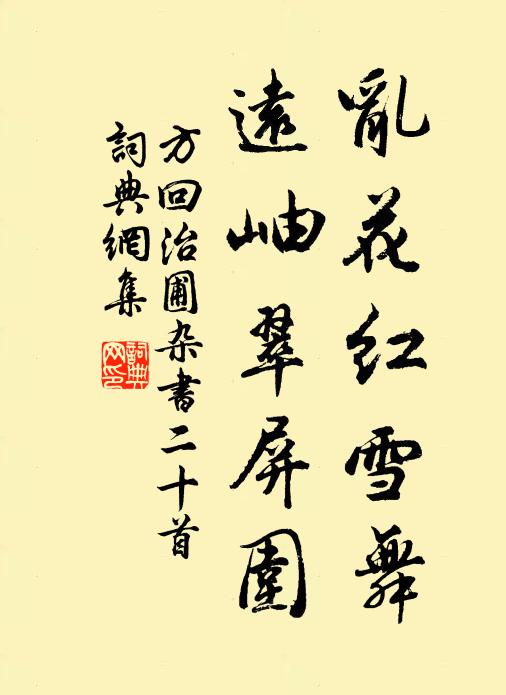 亂花紅雪舞
遠岫翠屏圍
方回治圃杂書二十首
詞典網集
詞典网印